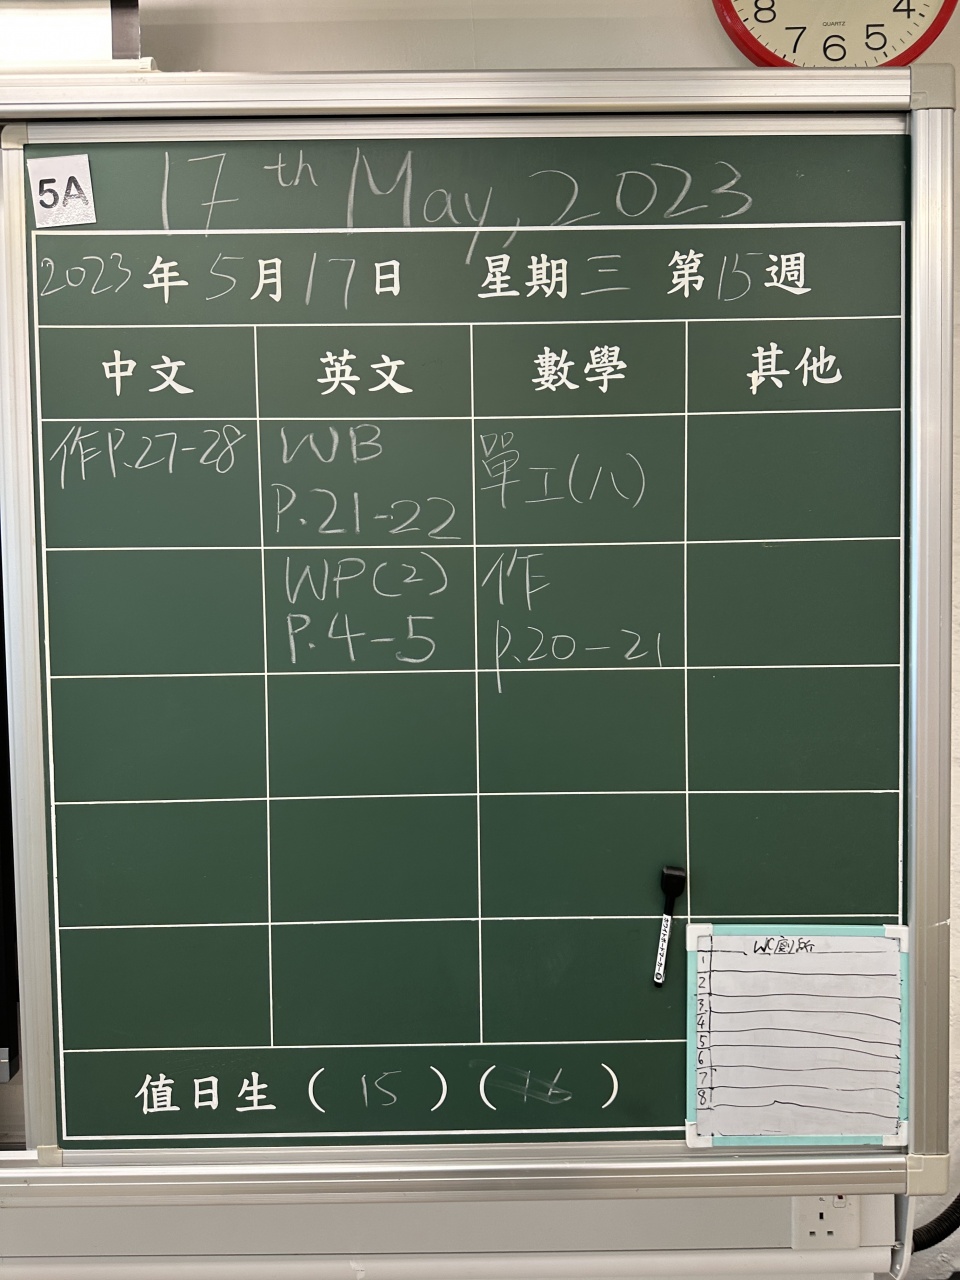 8 7 6 5 4
QUARTZ
5A
17th May, 2023
2023年5月17日 星期三 第15週
中文 英文 數學 其他
作P.27-28
WB
P.21-22
單工(八)
WP(2)
P.4-5
作
P.20-21
ホワイトボードマーカー
WC廁所
1
2
3
4
5
6
7
8
值日生 ( 15 ) ( 16 )
5A